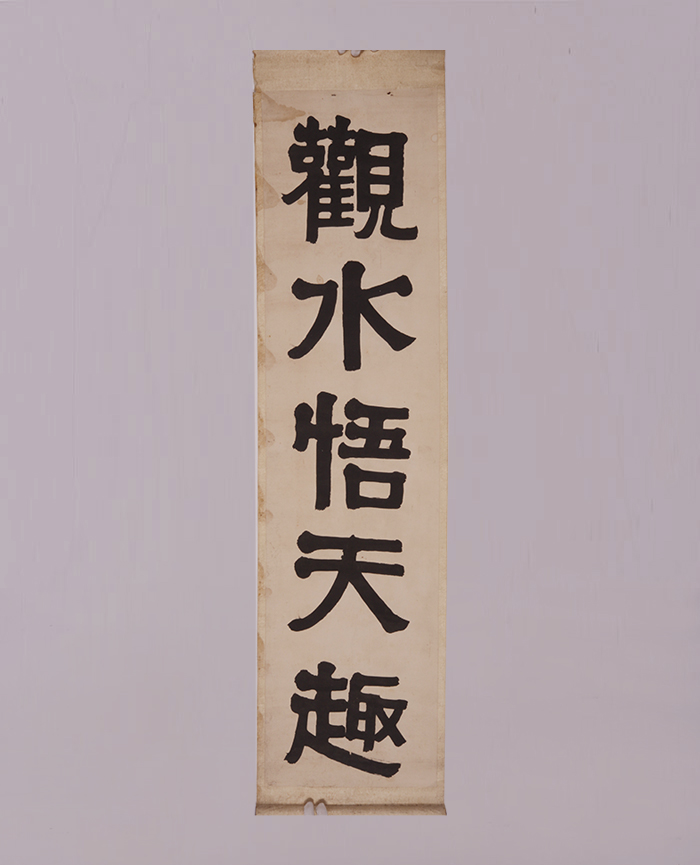 觀水悟天趣